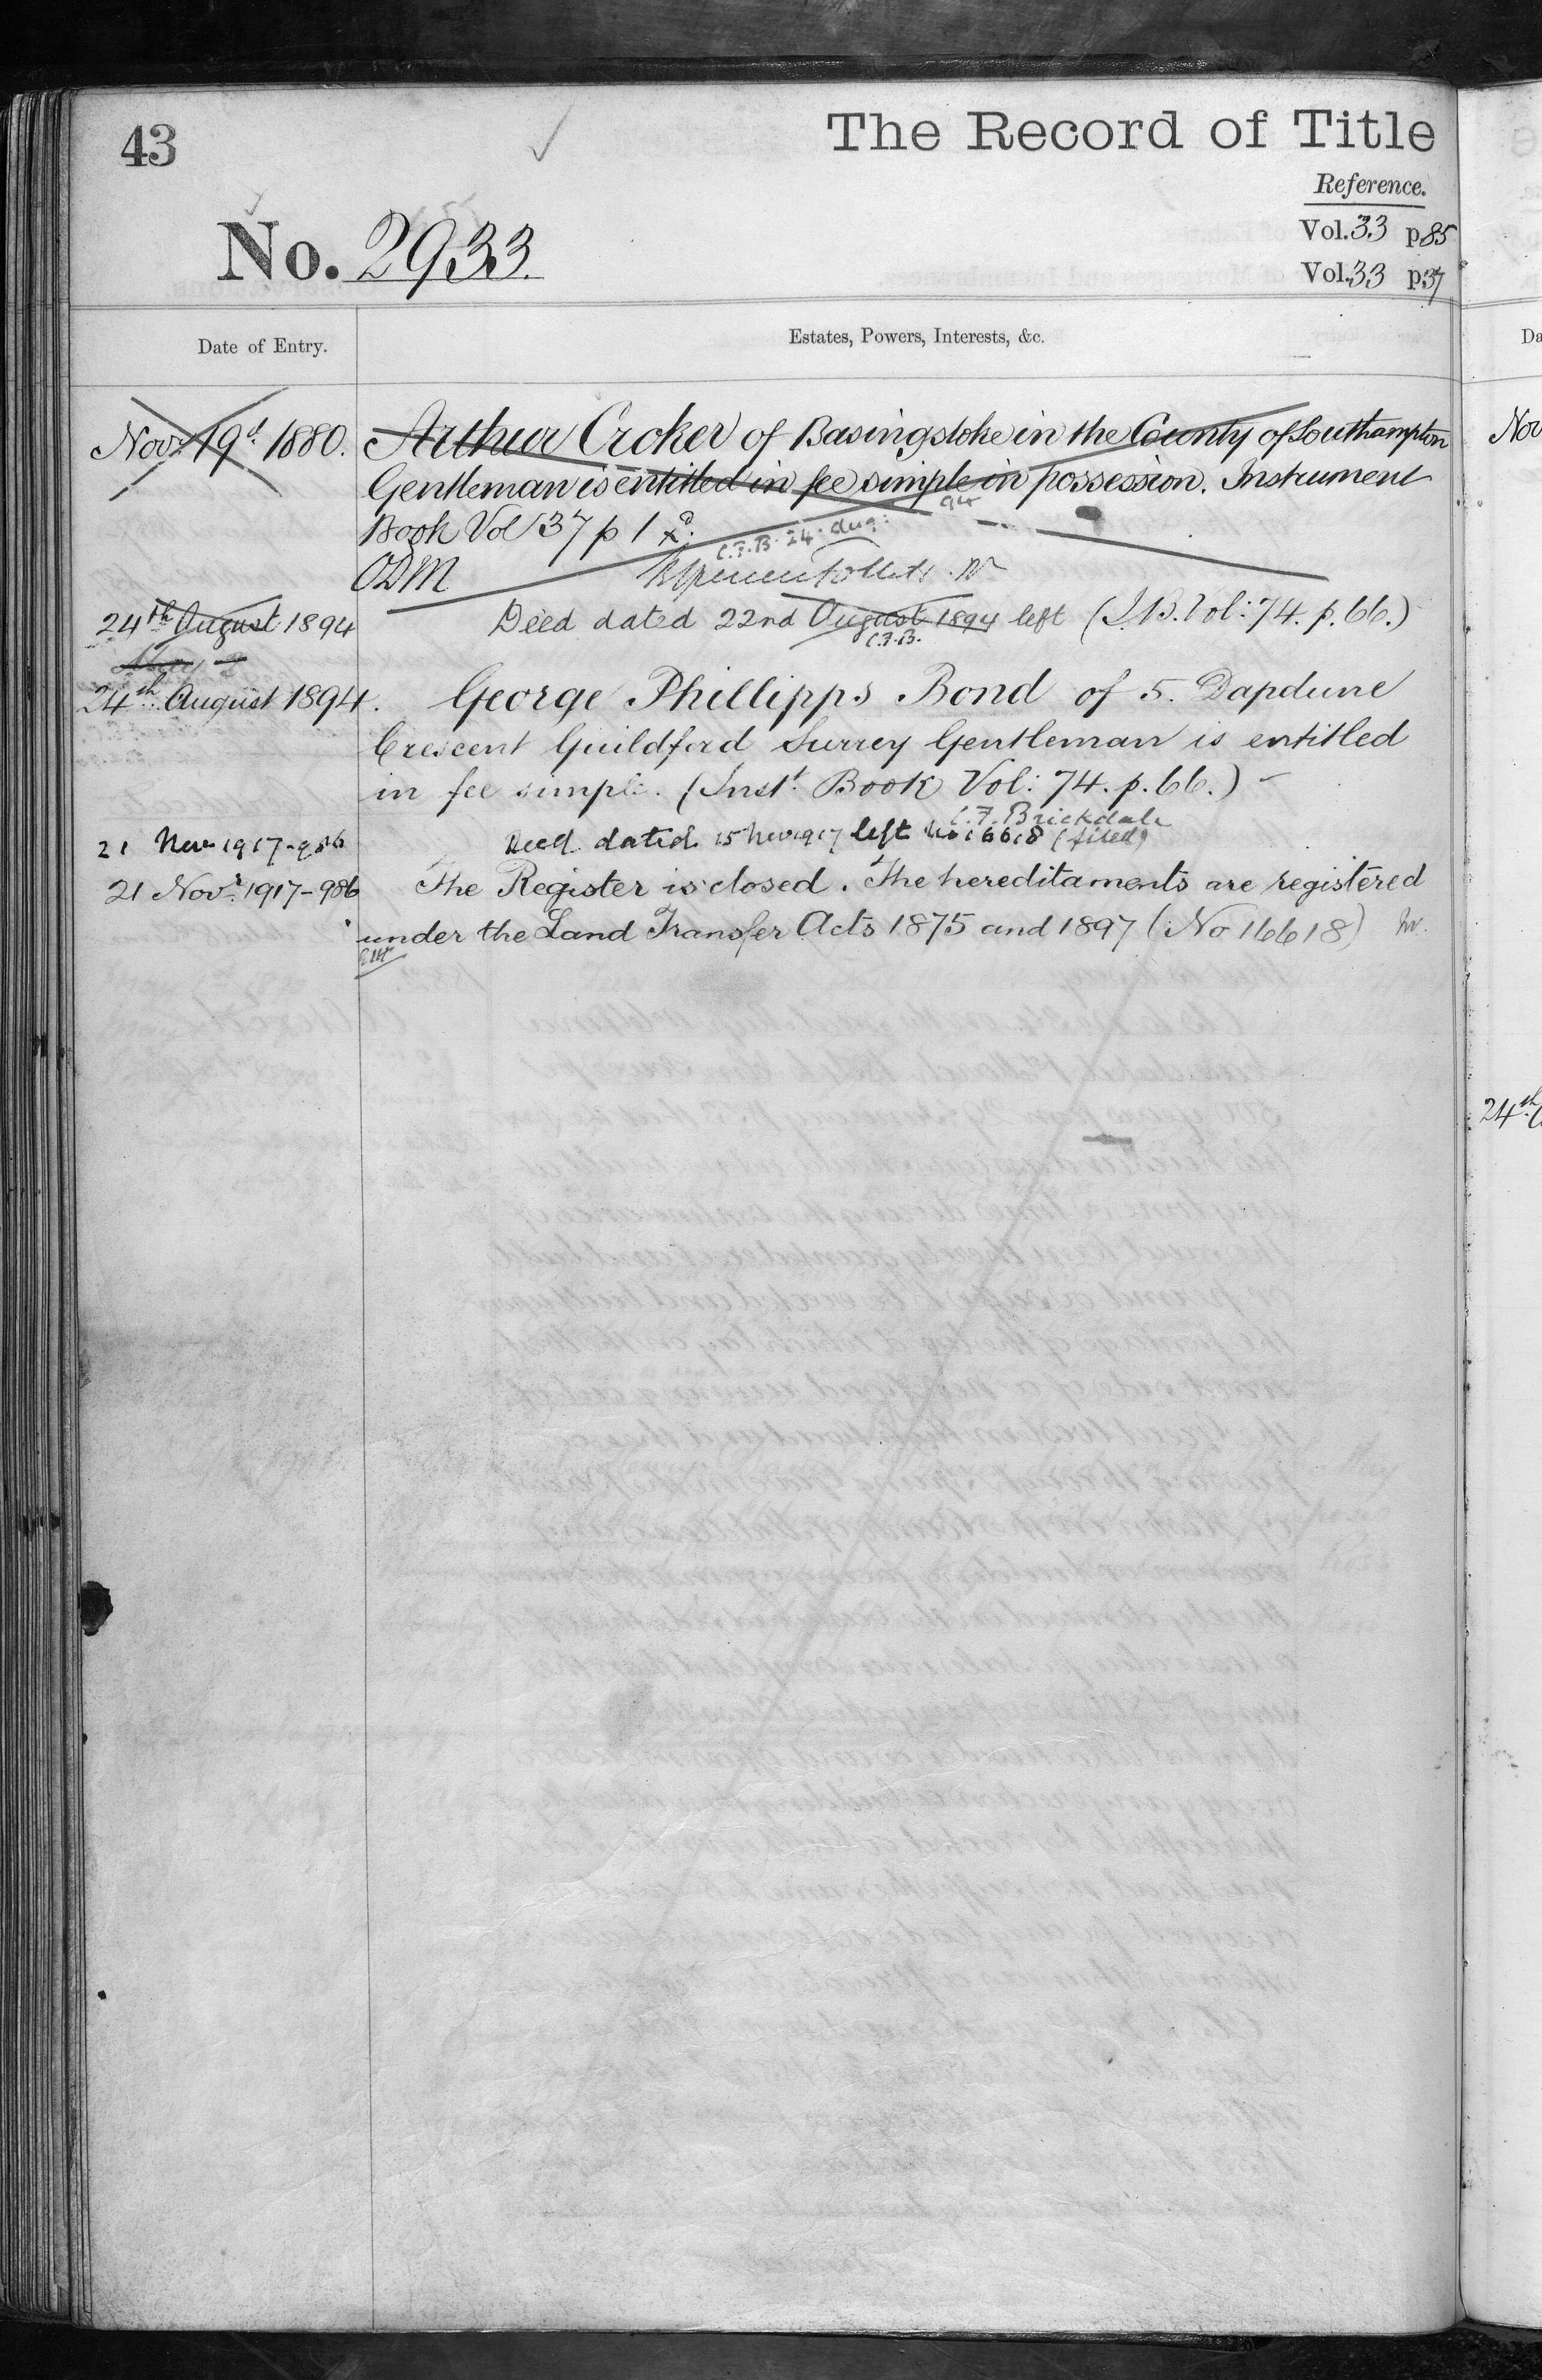 43
The Record of Title
Reference.
No. 2933.
Vol. 33 p 85
Vol. 33 p 37
Date of Entry.
Estates, Powers, Interests, &c.
Novr. 19th 1880. Arthur Croker of Basingstoke in the County of Southampton
Gentleman is entitled in fee simple in possession. Instrument
Book Vol 37 p 1
C.F.B. 24. Aug: 94
ODM
24th August 1894 Deed dated 22nd August 1894 left (I.B. Vol: 74. p. 66.)
C.F.B.
24th August 1894. George Phillipps Bond of 5. Dapdune
Crescent Guildford Surrey Gentleman is entitled
in fee simple. (Inst. Book Vol: 74. p. 66.)
C. F. Brickdale
21 Nov 1917-986 Deed dated 15 Nov 1917 left No 16618 (filed)
21 Novr. 1917-986 The Register is closed. The hereditaments are registered
under the Land Transfer Acts 1875 and 1897 (No 16618)
Nov
24th